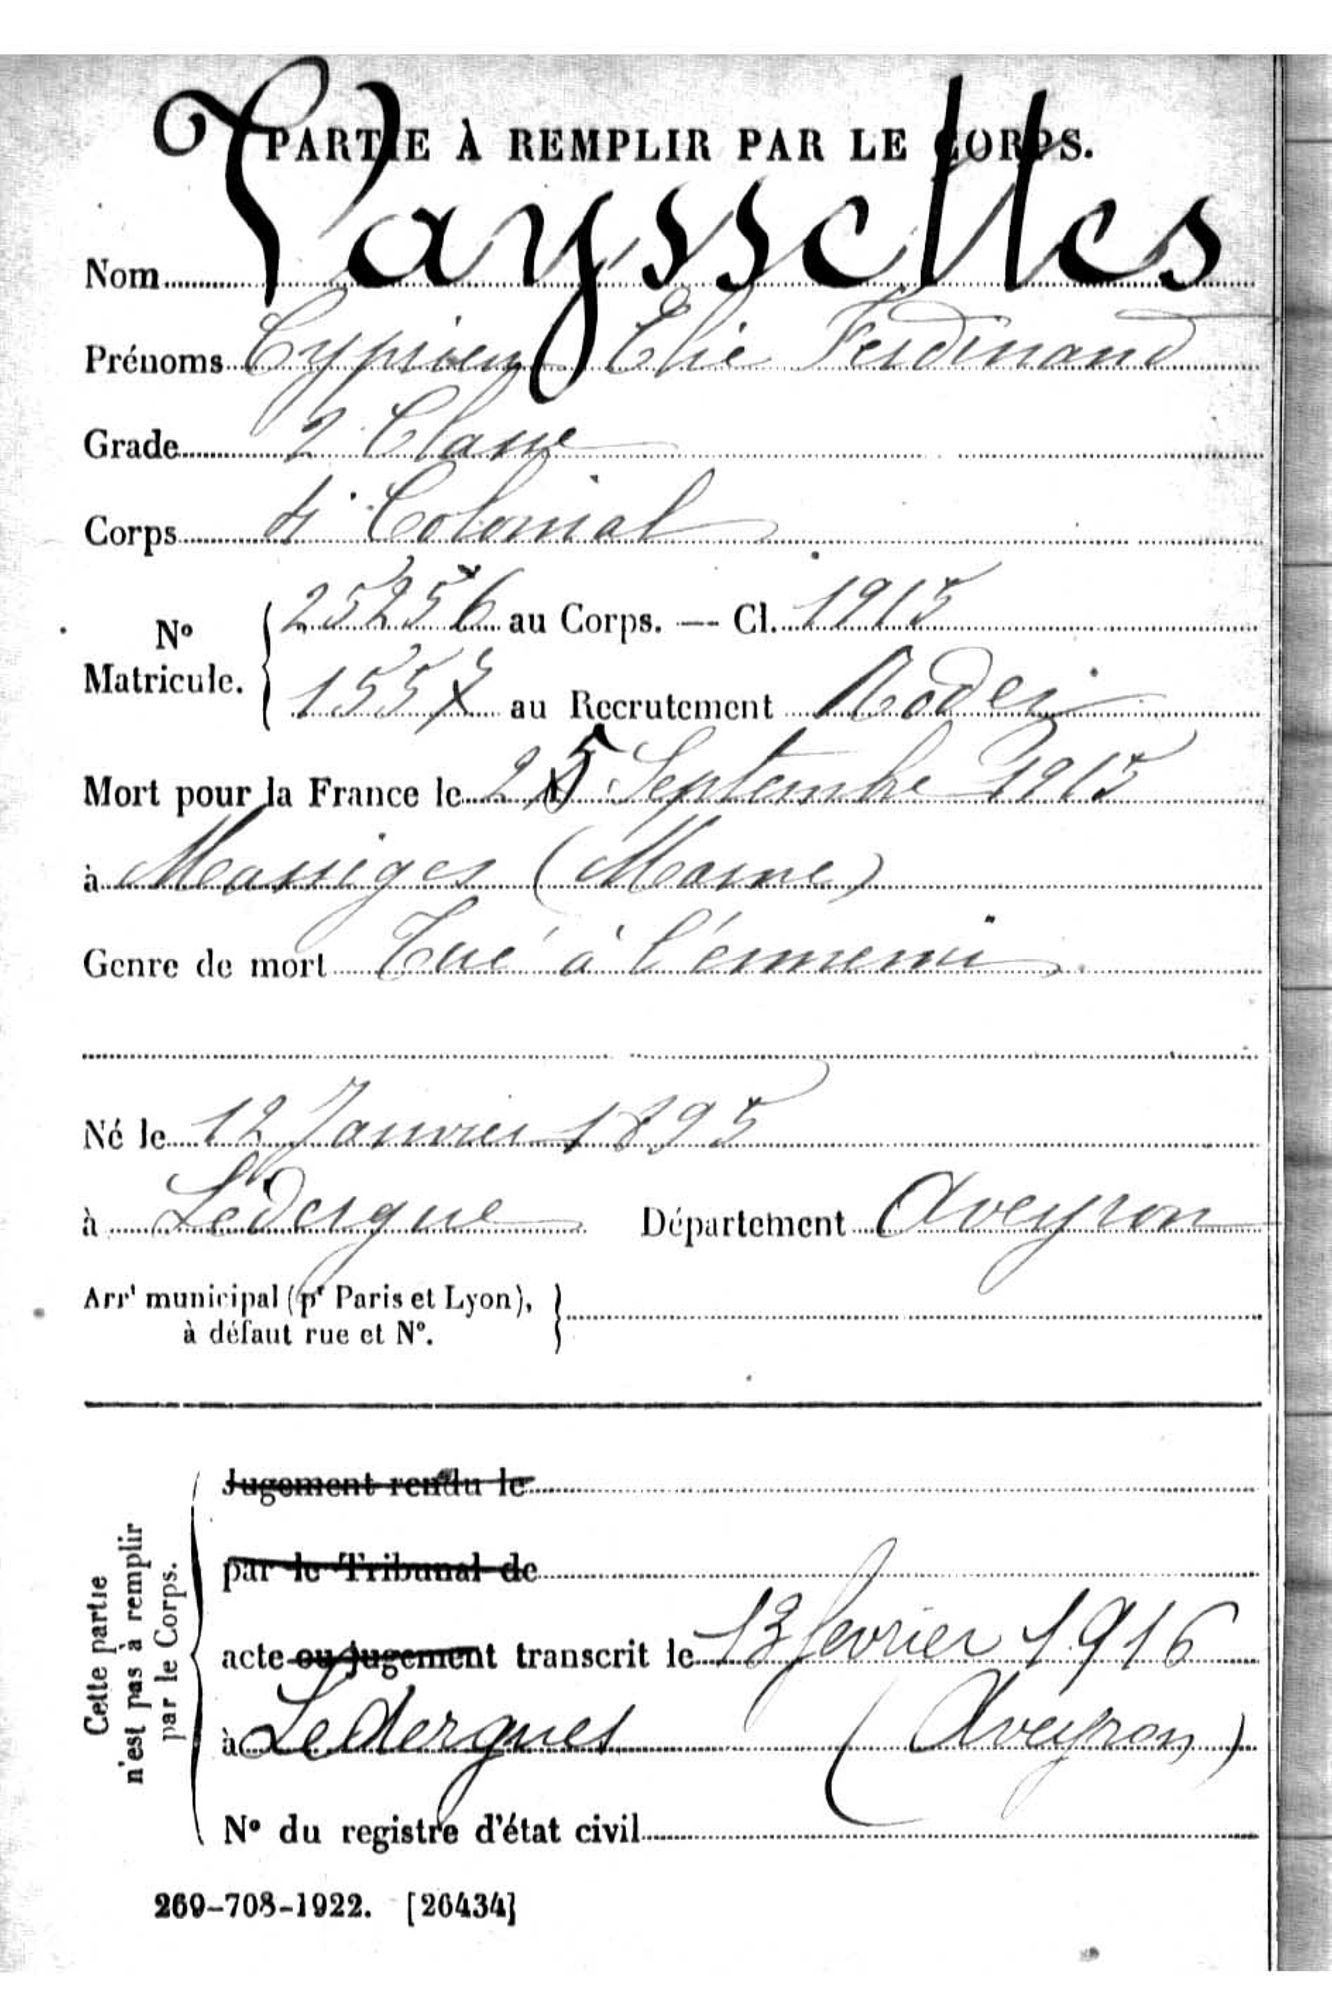 PARTIE À REMPLIR PAR LE CORPS.
Nom Vayssettes
Prénoms Cyprien Elie Ferdinand
Grade 2e Classe
Corps 4e Colonial
No Matricule. 25256 au Corps. — Cl. 1915
1557 au Recrutement Rodez
Mort pour la France le 25 Septembre 1915
à Massiges (Marne)
Genre de mort Tué à l'ennemi
Né le 12 Janvier 1895
à Lédergue Département Aveyron
Arrt municipal (pr Paris et Lyon),
à défaut rue et No.
Cette partie
n'est pas à remplir
par le Corps.
Jugement rendu le
par le Tribunal de
acte ou jugement transcrit le 13 février 1916
à Ledergues (Aveyron)
No du registre d'état civil
269-708-1922. [26434]